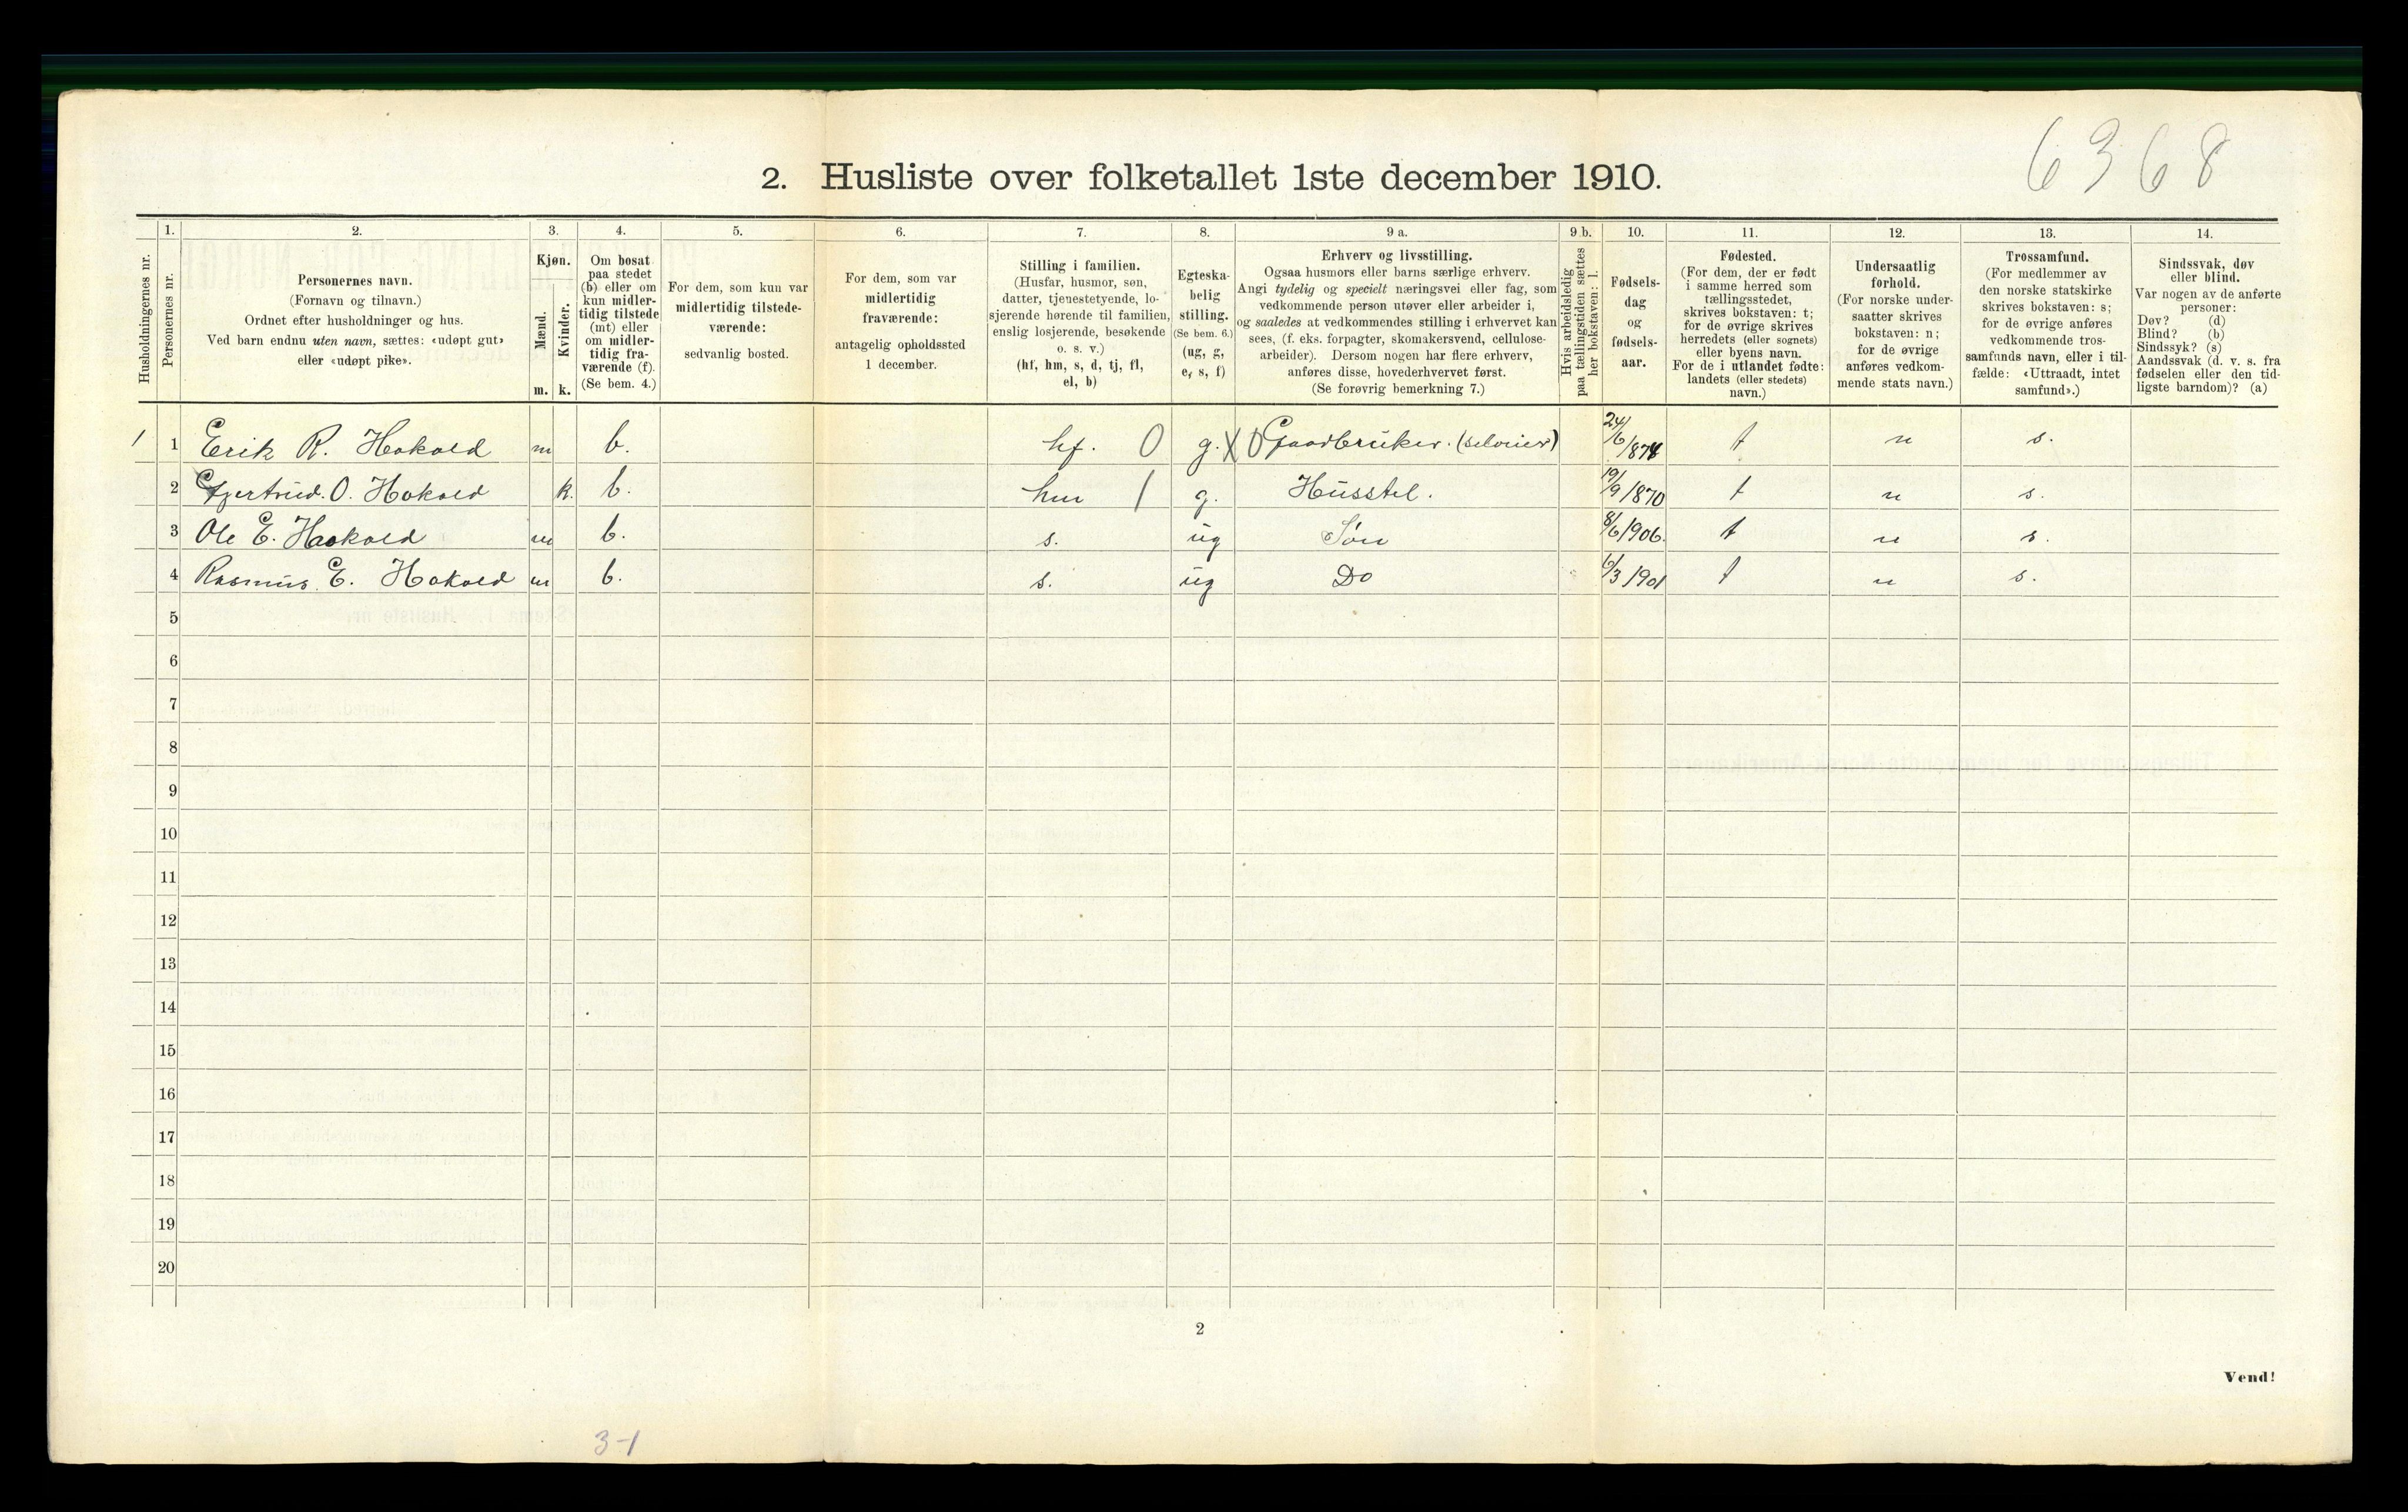 6368
2. Husliste over folketallet 1ste december 1910.
Husholdningernes nr.
1.
Personernes nr.
2.
Personernes navn.
(Fornavn og tilnavn.)
Ordnet efter husholdninger og hus.
Ved barn endnu uten navn, sættes: «udøpt gut»
eller «udøpt pike».
3.
Kjøn.
Mænd.
m.
Kvinder.
k.
4.
Om bosat
paa stedet
(b) eller om
kun midler-
tidig tilstede
(mt) eller
om midler-
tidig fra-
værende (f).
(Se bem. 4.)
5.
For dem, som kun var
midlertidig tilstede-
værende:
sedvanlig bosted.
6.
For dem, som var
midlertidig
fraværende:
antagelig opholdssted
1 december.
7.
Stilling i familien.
(Husfar, husmor, søn,
datter, tjenestetyende, lo-
sjerende hørende til familien,
enslig losjerende, besøkende
o. s. v.)
(hf, hm, s, d, tj, fl,
el, b)
8.
Egteska-
belig
stilling.
(Se bem. 6.)
(ug, g,
e, s, f)
9 a.
Erhverv og livsstilling.
Ogsaa husmors eller barns særlige erhverv.
Angi tydelig og specielt næringsvei eller fag, som
vedkommende person utøver eller arbeider i,
og saaledes at vedkommendes stilling i erhvervet kan
sees, (f. eks. forpagter, skomakersvend, cellulose-
arbeider). Dersom nogen har flere erhverv,
anføres disse, hovederhvervet først.
(Se forøvrig bemerkning 7.)
9 b.
Hvis arbeidsledig
paa tællingstiden sættes
her bokstaven: l.
10.
Fødsels-
dag
og
fødsels-
aar.
11.
Fødested.
(For dem, der er født
i samme herred som
tællingsstedet,
skrives bokstaven: t;
for de øvrige skrives
herredets (eller sognets)
eller byens navn.
For de i utlandet fødte:
landets (eller stedets)
navn.)
12.
Undersaatlig
forhold.
(For norske under-
saatter skrives
bokstaven: n;
for de øvrige
anføres vedkom-
mende stats navn.)
13.
Trossamfund.
(For medlemmer av
den norske statskirke
skrives bokstaven: s;
for de øvrige anføres
vedkommende tros-
samfunds navn, eller i til-
fælde: «Uttraadt, intet
samfund».)
14.
Sindssvak, døv
eller blind.
Var nogen av de anførte
personer:
Døv? (d)
Blind? (b)
Sindssyk? (s)
Aandssvak (d. v. s. fra
fødselen eller den tid-
ligste barndom)? (a)
1 1 Erik R. Hokold m b. hf. 0 g. X 0 Gaardbruker. (selveier) 24/6 1874 t n s.
2 Gjertrud. O. Hokold k. b. hm 1 g. Husstel. 19/9 1870 t n s.
3 Ole E. Haokold m b. s. ug Søn 8/6 1906. t n s.
4 Rasmus. E. Hokold m b. s. ug Do 6/3 1901 t n s.
5
6
7
8
9
10
11
12
13
14
15
16
17
18
19
20
2
Vend!
3-1